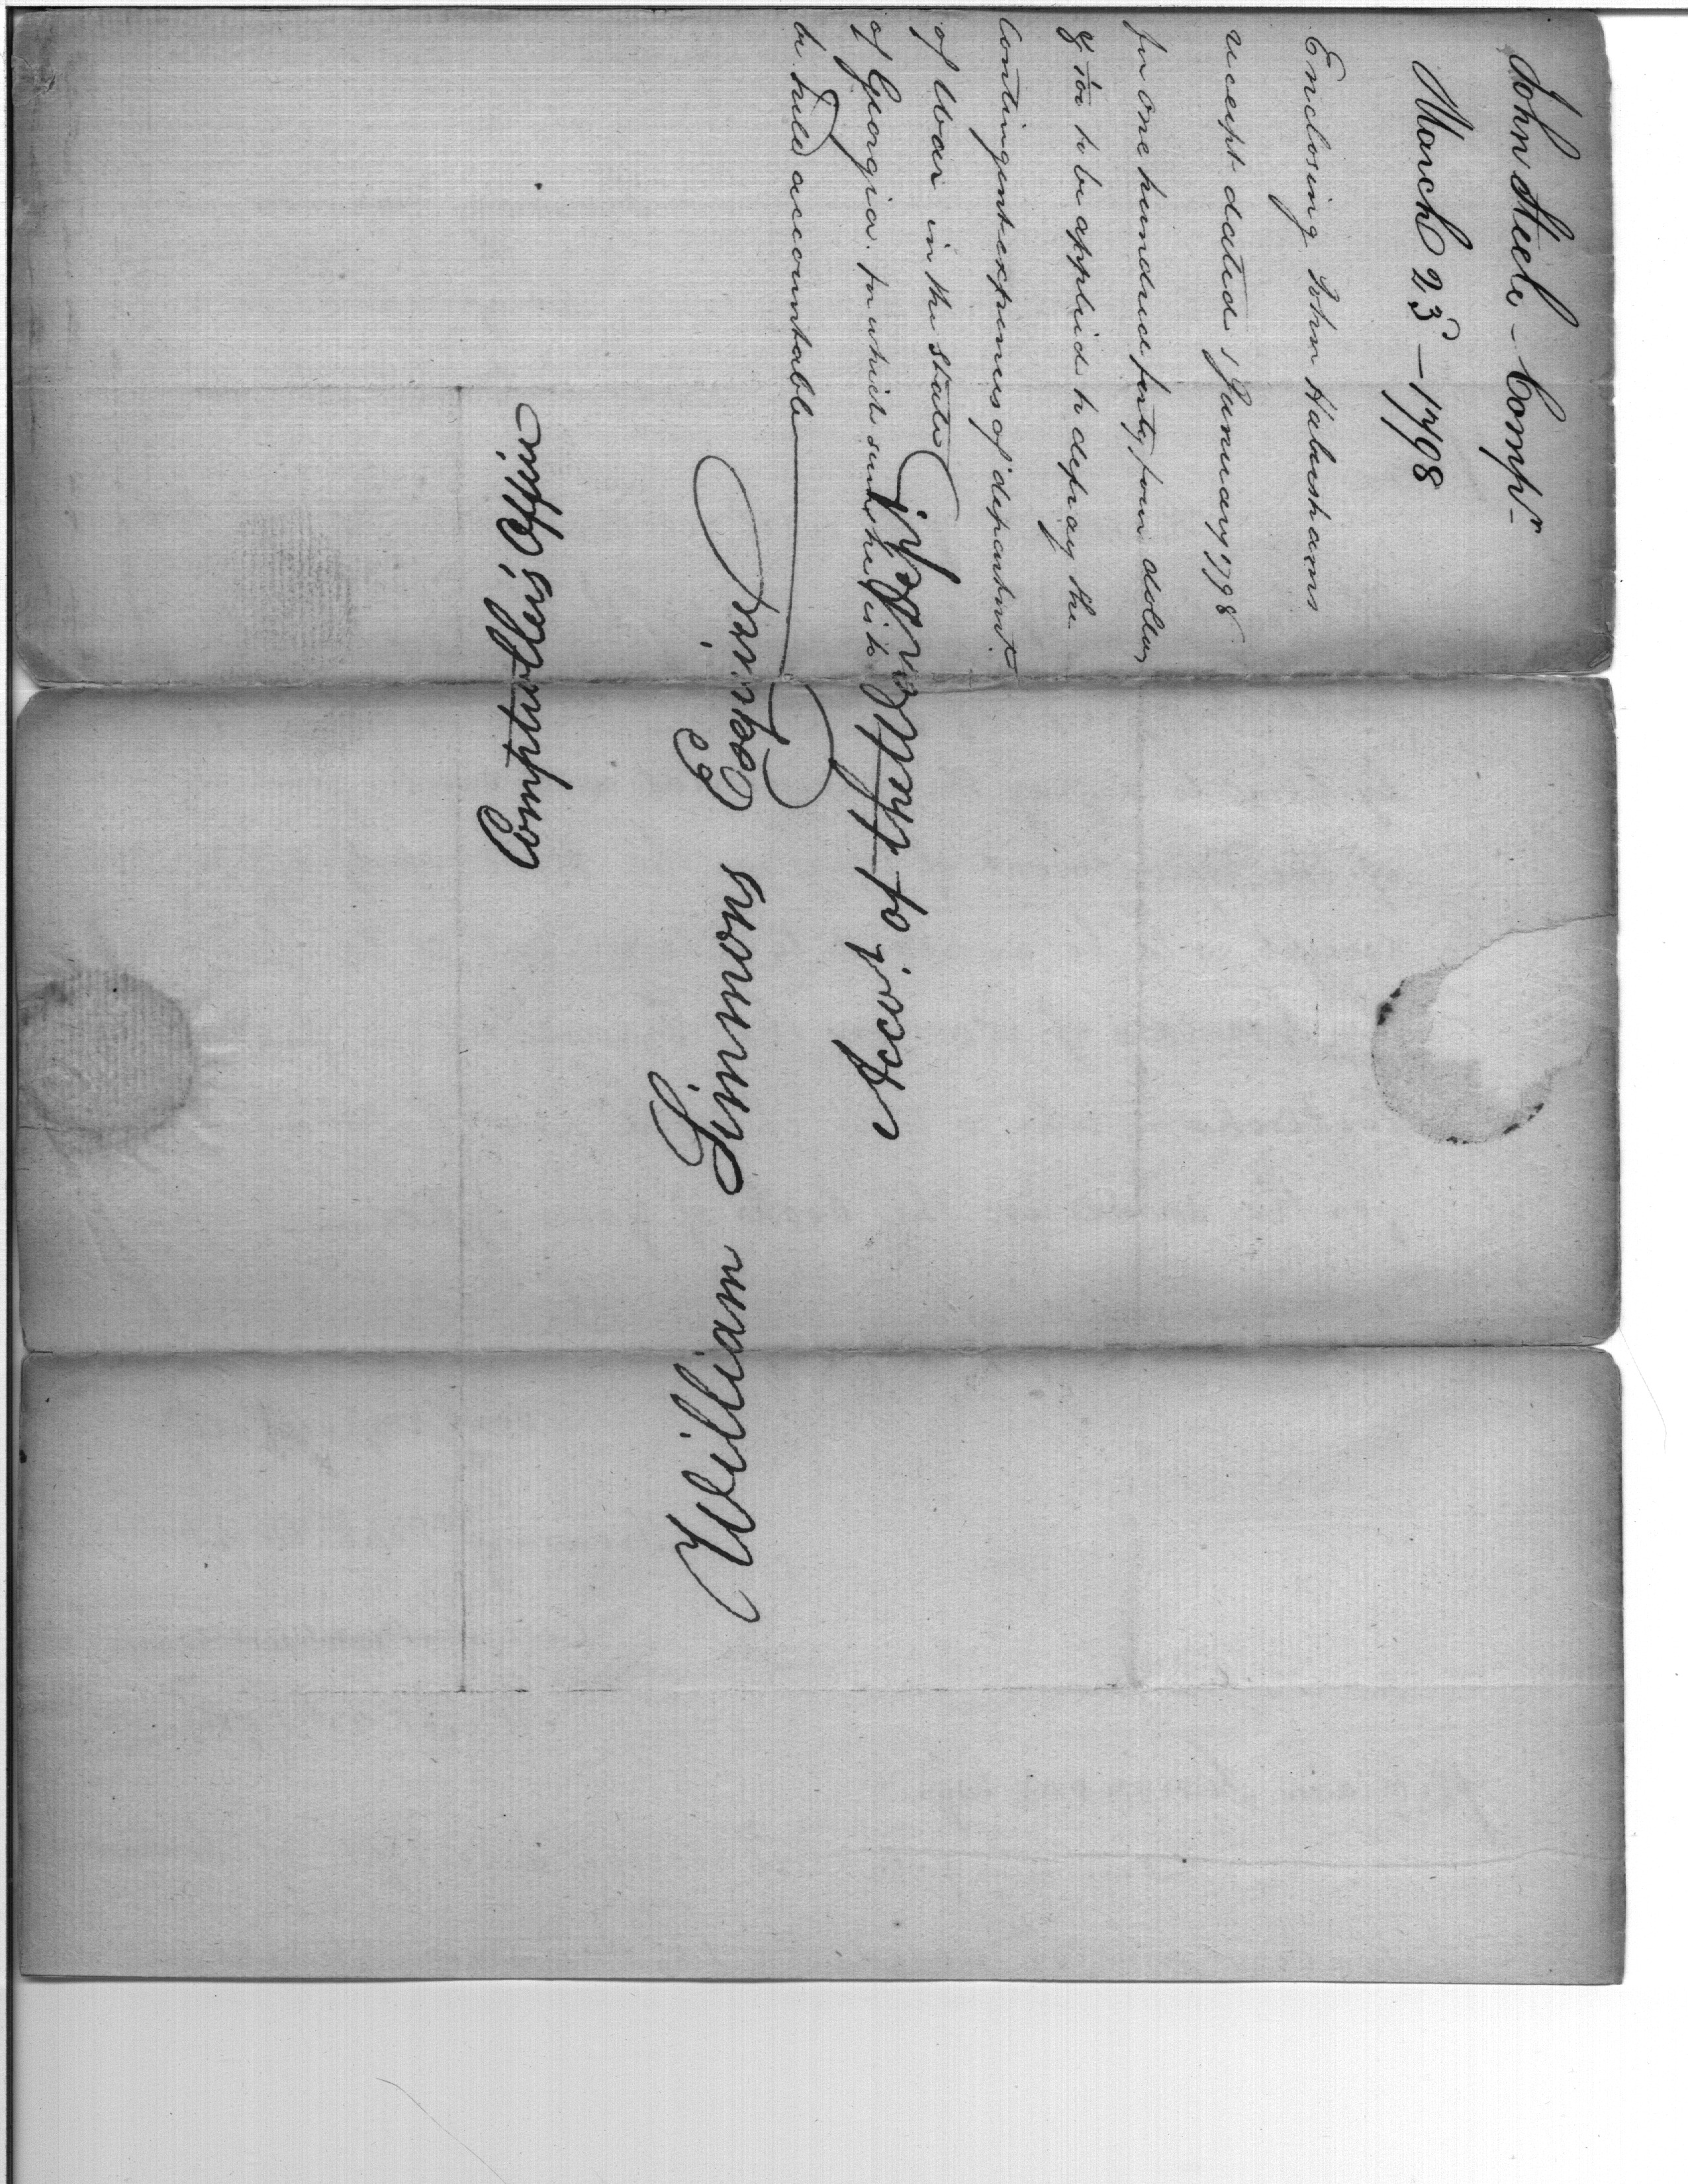 John Steele - Compr.
March 23 - 1798
Enclosing John Habershams
receipt dated 1 January 1798
for one hundred forty four dollars
& to be applied to defray the
Contingent expenses of department
of War in the State
of Georgia. for which sum he is to
be held accountable
William Simmons Esquire
Comptroller's Office